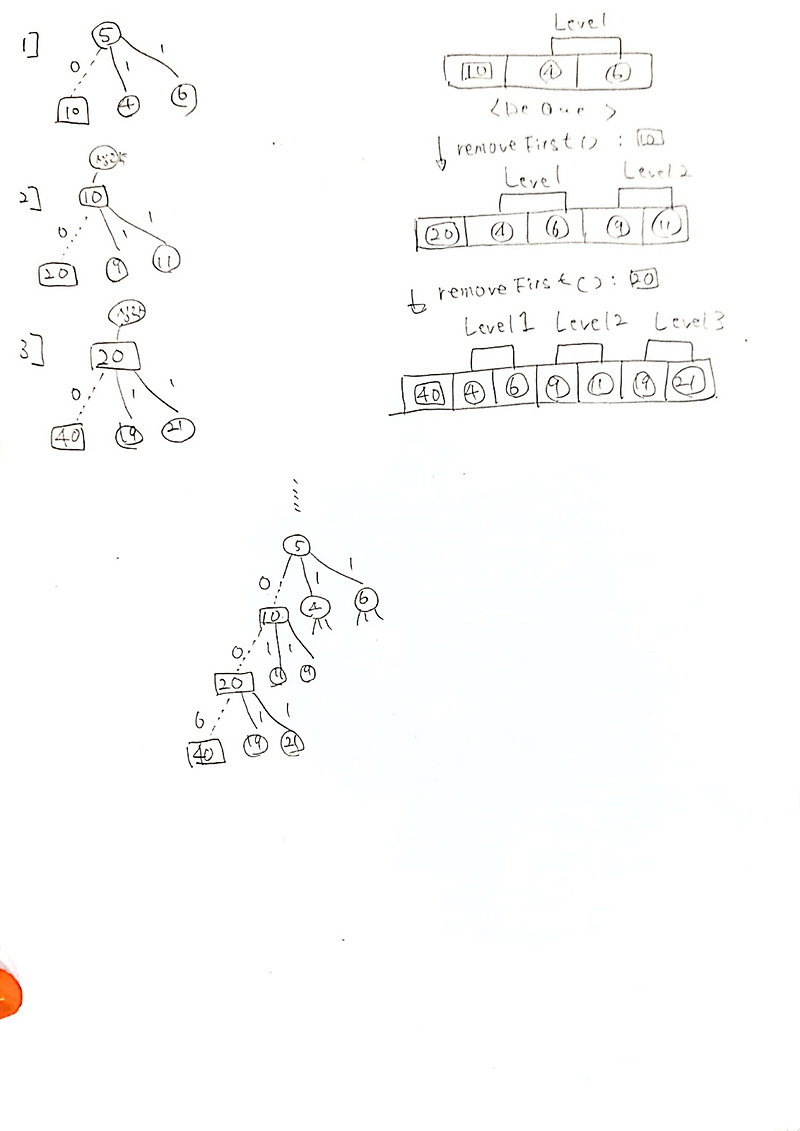 1]
5
0 1 1
10 4 6
2]
10
0 1 1
20 9 11
3]
20
0 1 1
40 19 21
Level
10 4 6
<DeQue>
removeFirst() : 10
Level Level 2
20 4 6 9 11
removeFirst() : 20
Level1 Level2 Level3
40 4 6 9 11 9 21
5
0 1 1
10 4 6
0 1 1
20 11 9
6 1 1
40 19 21